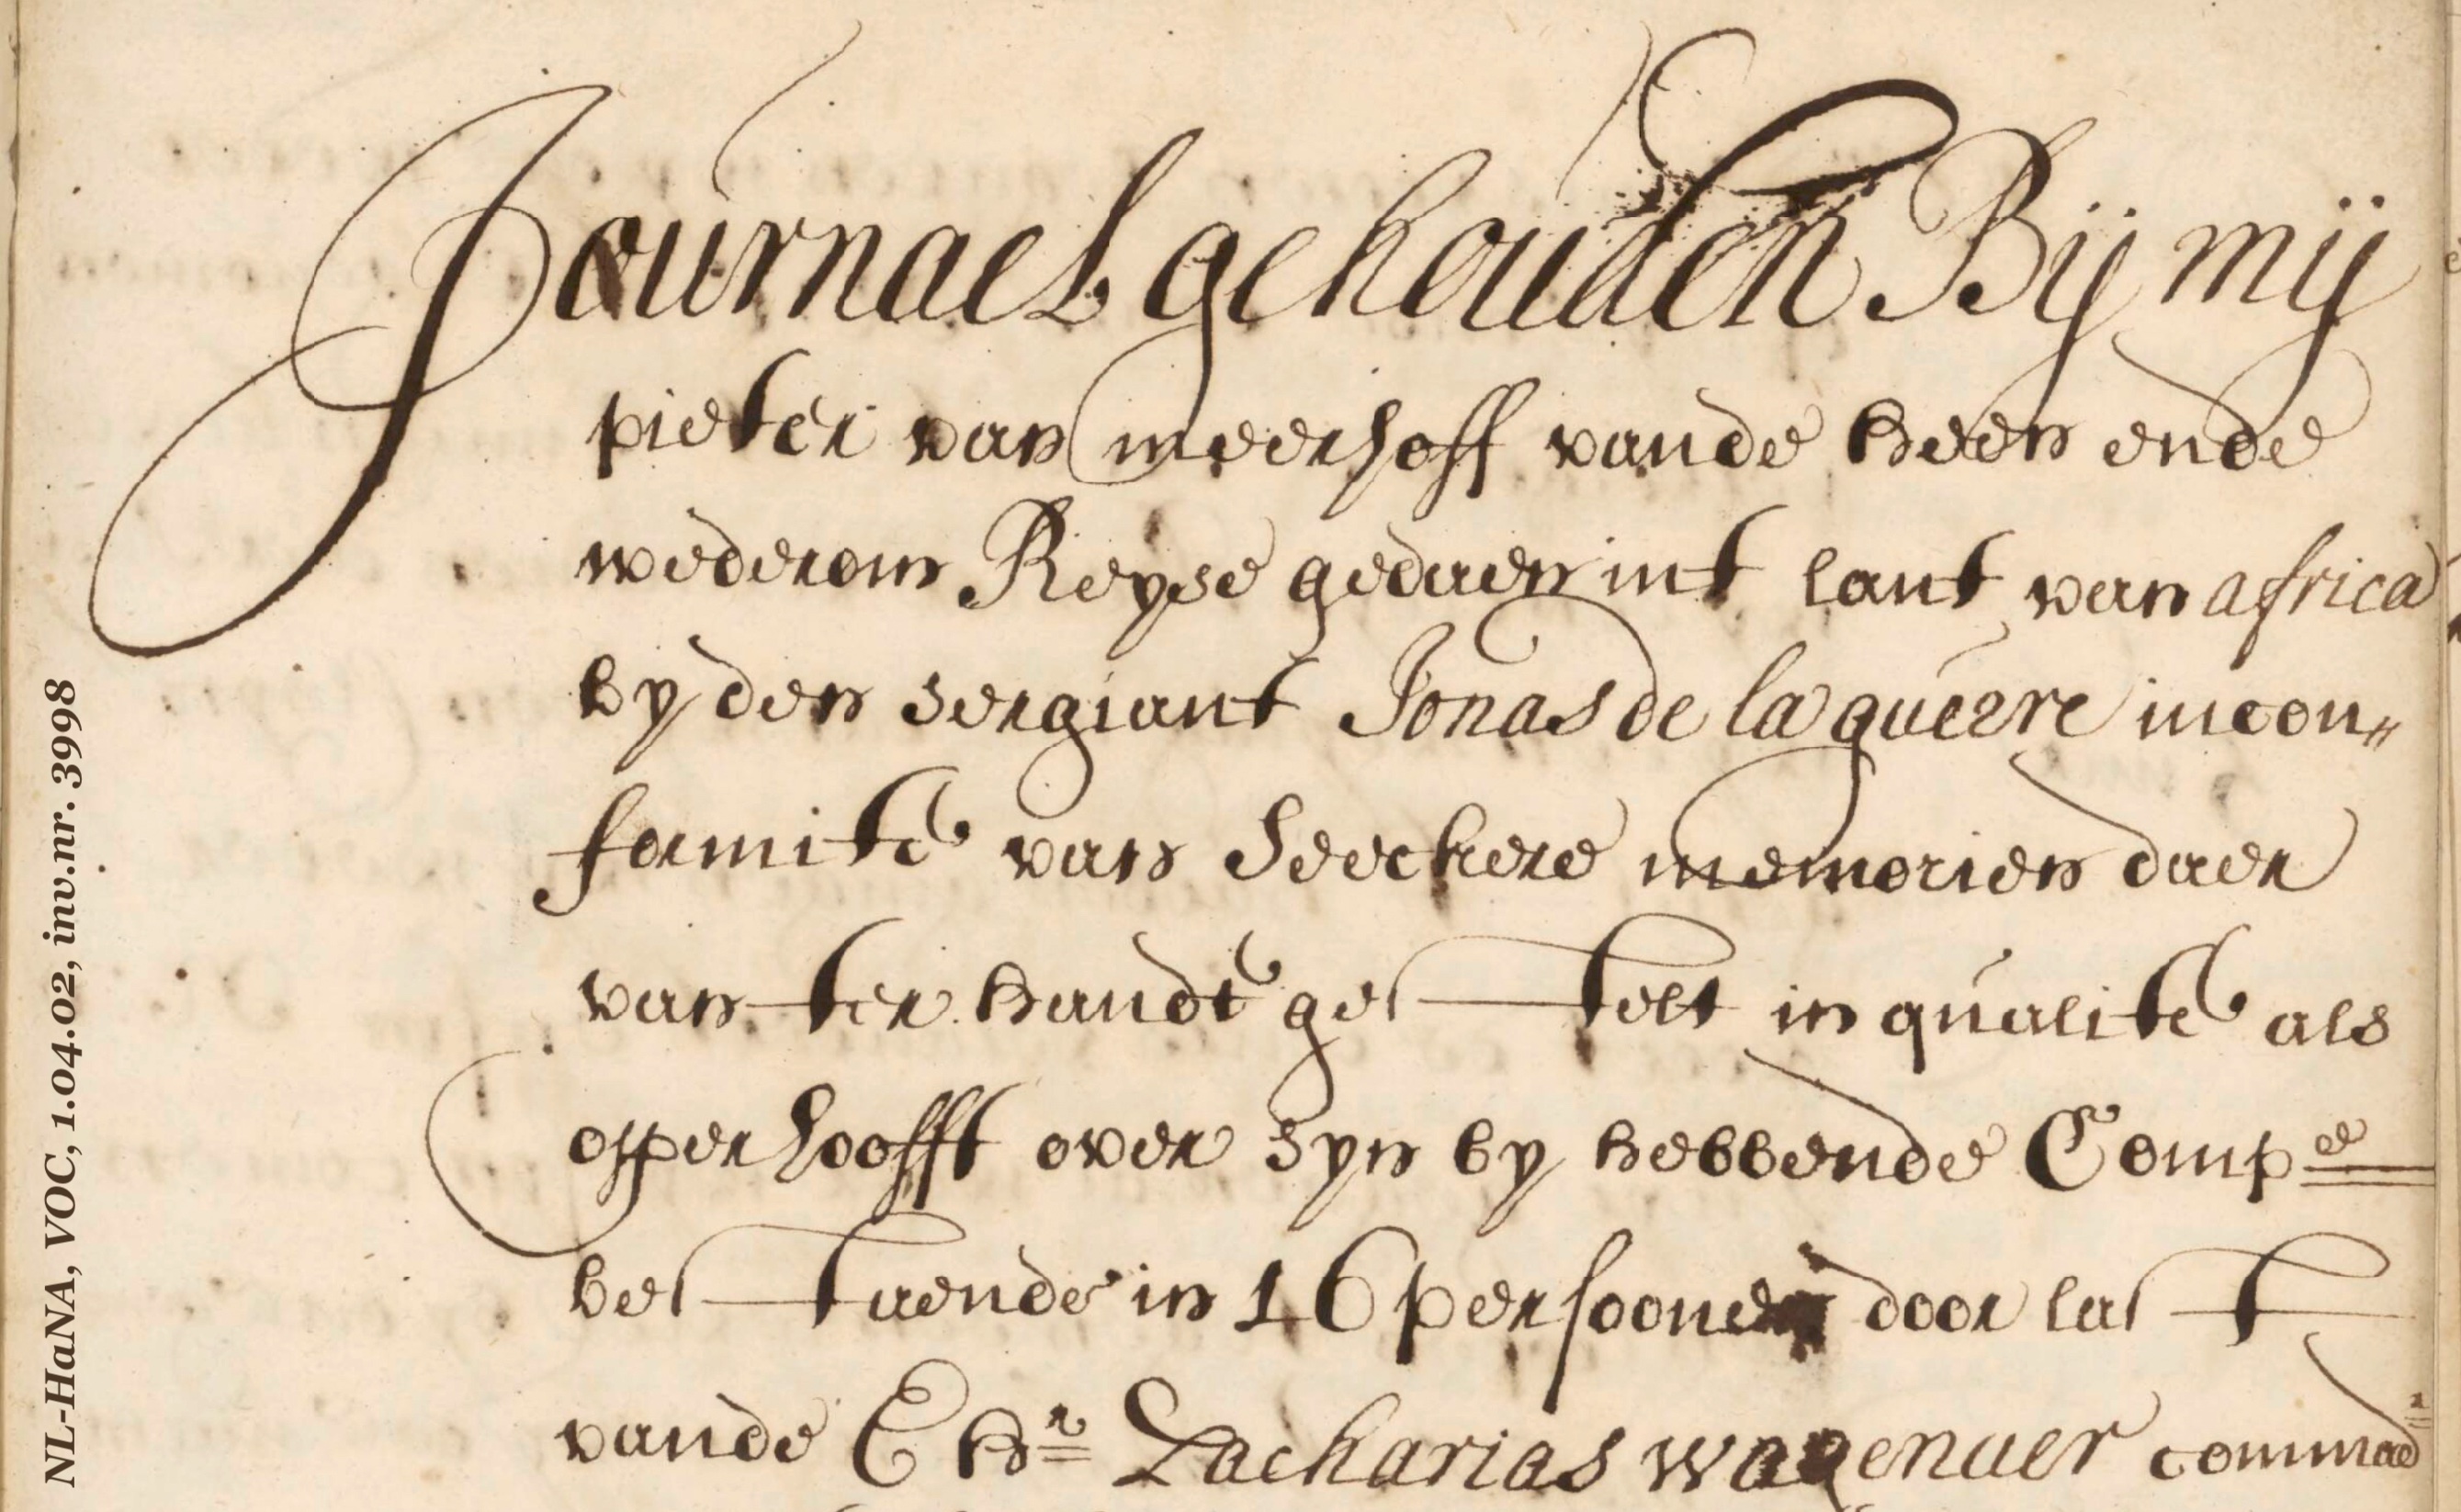 Journael gehouden Bij mij
pieter van meerhoff vande heen ende
wederom Reyse gedaen int lant van africa
by den sergiant Jonas de la guerre incon„
formite van Seeckere memorien daer
van ter handt gestelt in qualite als
opperhoofft over syn by hebbende Compe
bestaende in 16 persoonen door last
vande E hr Zacharias wagenaer command
NL-HaNA, VOC, 1.04.02, inv.nr. 3998